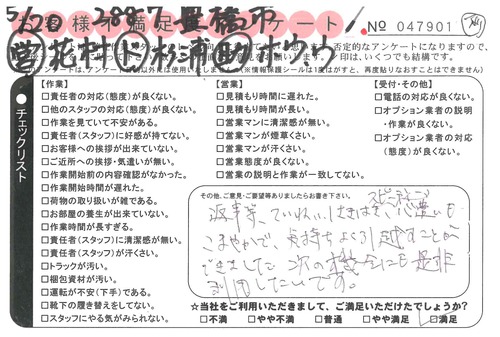 5/20 28㌧ 豊橋市
お客様不満足アンケート
No 047901
営 花村 杉浦
チェックリスト
【作業】
□責任者の対応(態度)が良くない。
□他のスタッフの対応(態度)が良くない。
□作業を見ていて不安がある。
□責任者(スタッフ)に好感が持てない。
□お客様への挨拶が出来ていない。
□ご近所への挨拶・気遣いが無い。
□作業開始前の内容確認がなかった。
□作業開始時間が遅れた。
□荷物の取り扱いが雑である。
□お部屋の養生が出来ていない。
□作業時間が長すぎる。
□責任者(スタッフ)に清潔感が無い。
□責任者(スタッフ)が汗くさい。
□トラックが汚い。
□梱包資材が汚い。
□運転が不安(下手)である。
□靴下の履き替えをしてない。
□スタッフにやる気がみられない。
【営業】
□見積もり時間に遅れた。
□見積もり時間が長い。
□営業マンに清潔感が無い。
□営業マンが煙草くさい。
□営業マンが汗くさい。
□営業態度が良くない。
□営業の説明と作業が一致してない。
【受付・その他】
□電話の対応が良くない。
□オプション業者の説明
・作業が良くない。
□オプション業者の対応
(態度)が良くない。
その他、ご意見・ご要望等ありましたらお書き下さい。
スピーディー
ていねい、
こまやかで、気持ちよく引越すことが
できました 次の機会にも是非
利用したいです。
☆当社をご利用いただきまして、ご満足いただけたでしょうか?
□不満 □やや不満 □普通 □やや満足 □満足